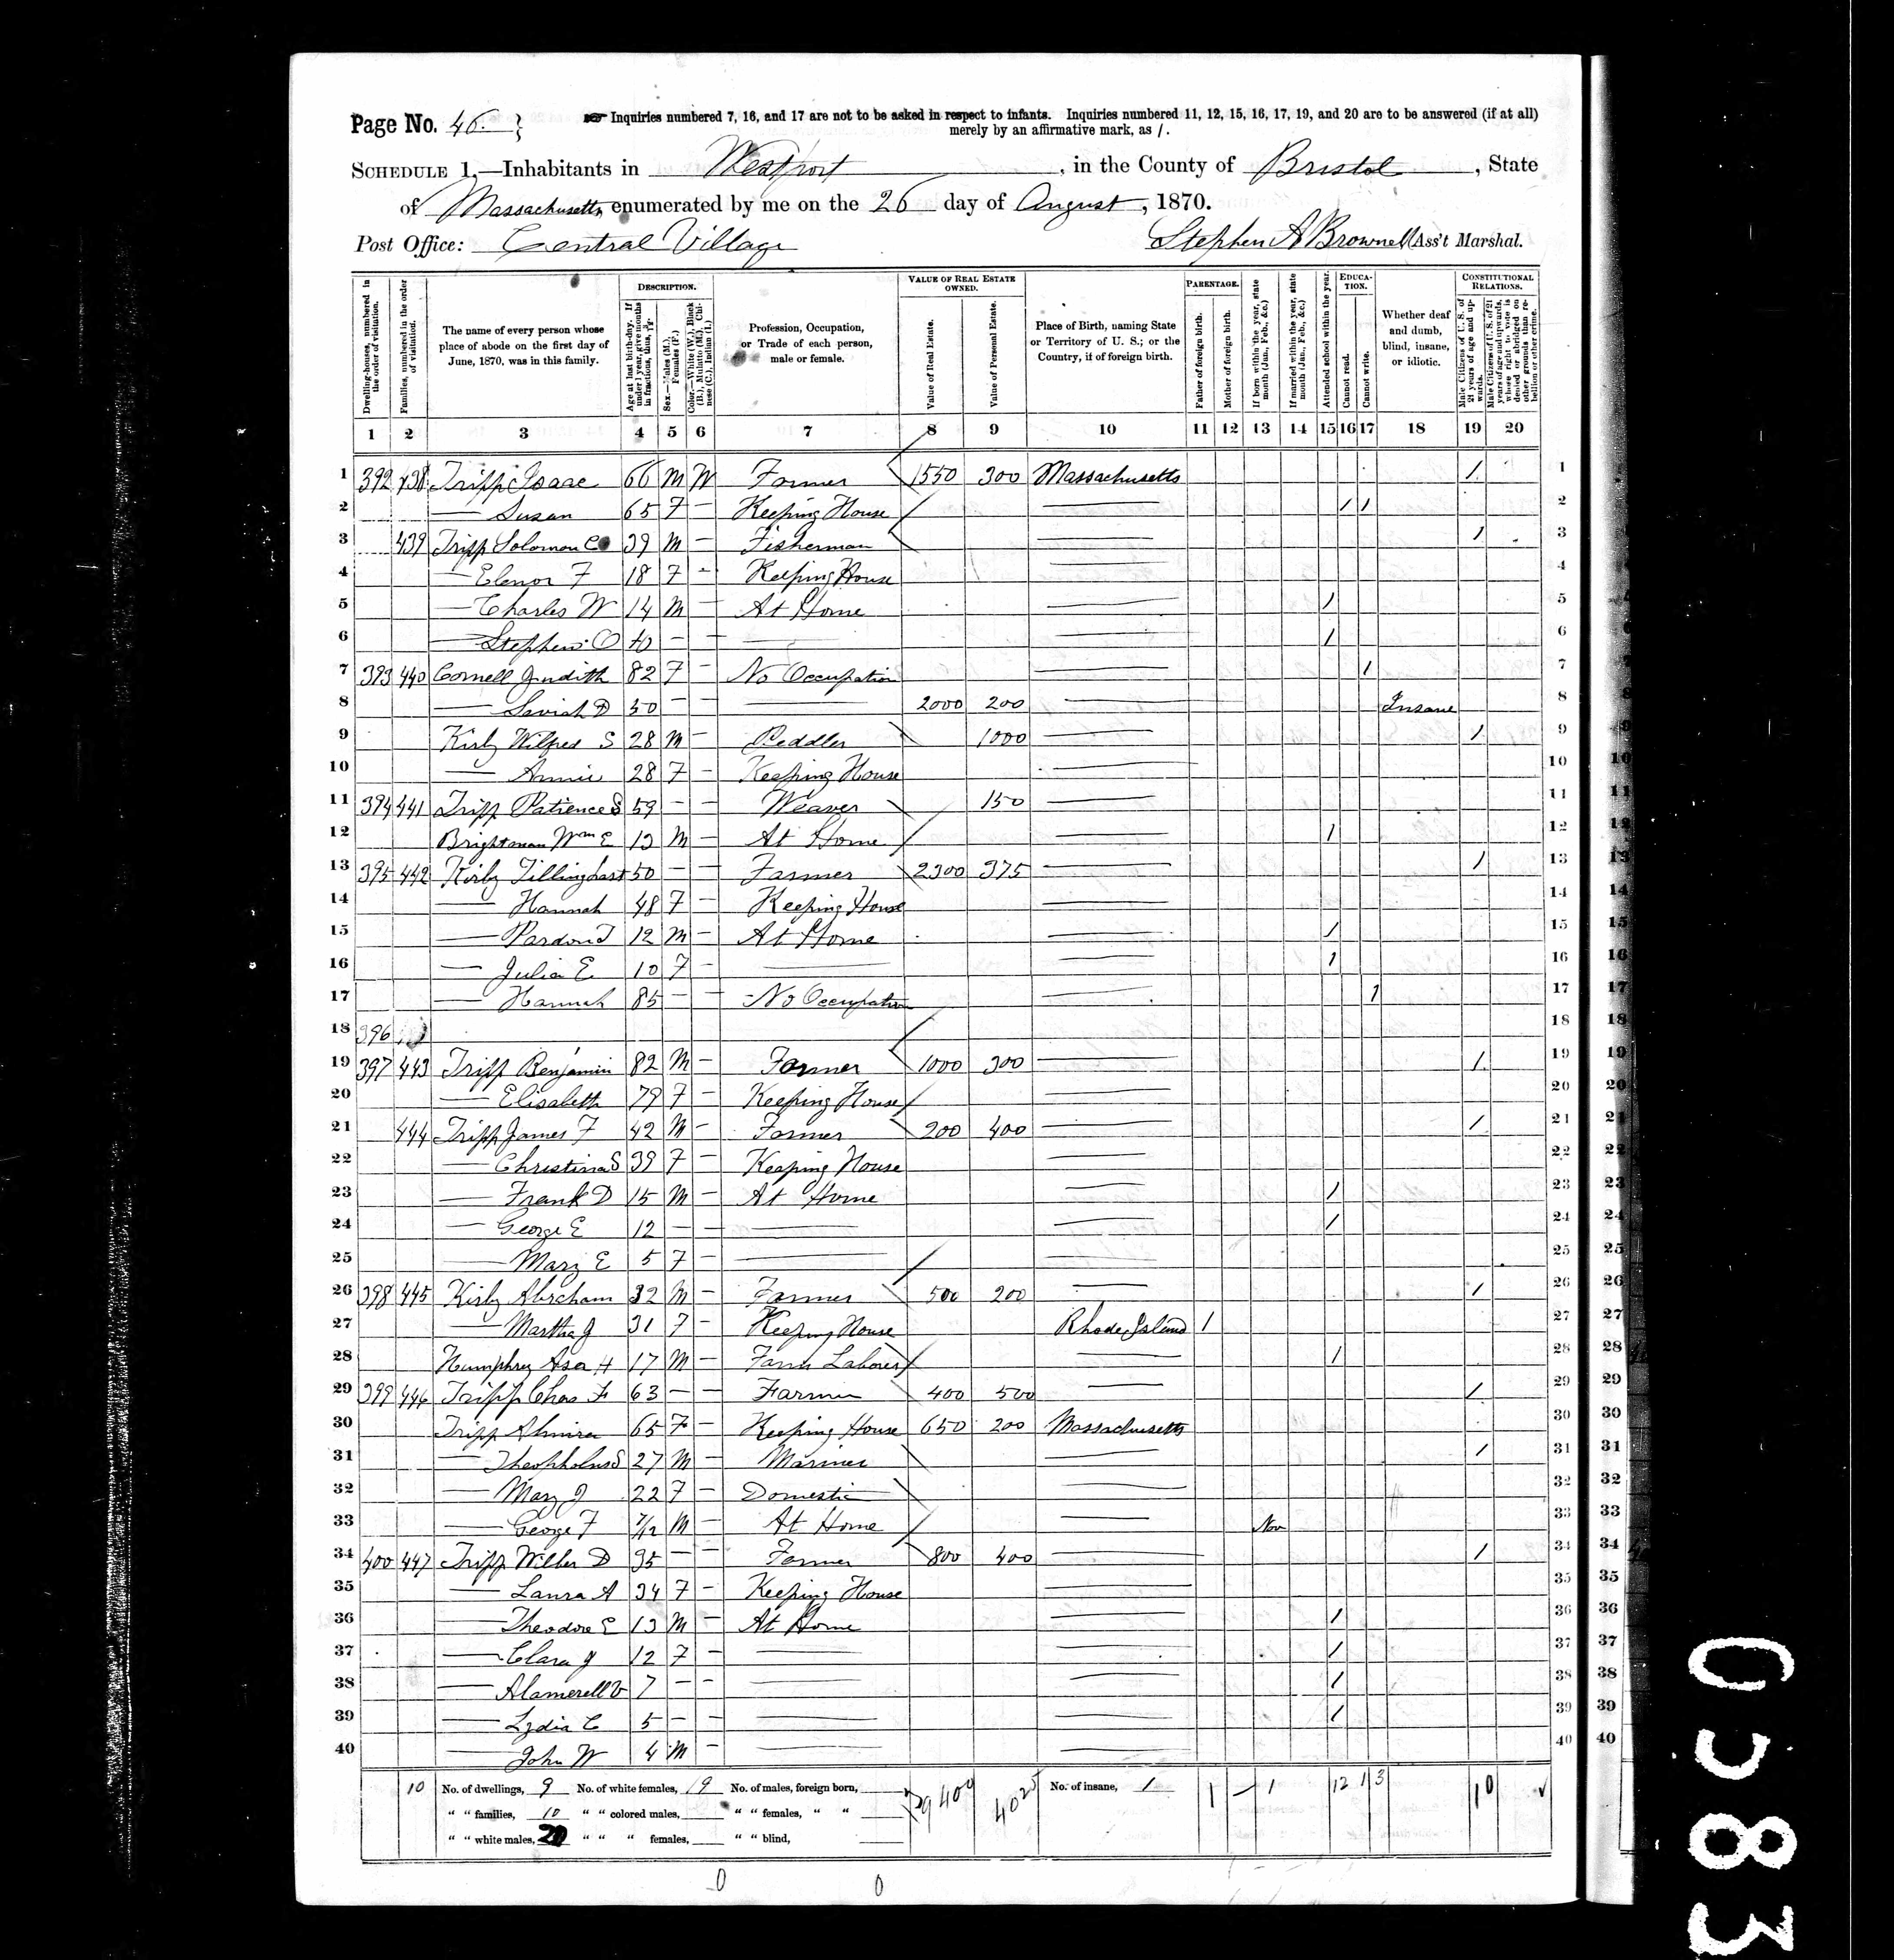 Page No. 46.
☞ Inquiries numbered 7, 16, and 17 are not to be asked in respect to infants. Inquiries numbered 11, 12, 15, 16, 17, 19, and 20 are to be answered (if at all)
merely by an affirmative mark, as /.
SCHEDULE 1.—Inhabitants in Westport, in the County of Bristol, State
of Massachusetts enumerated by me on the 26 day of August, 1870.
Post Office: Central Village Stephen A Brownell Ass't Marshal.
Dwelling-houses, numbered in the order of visitation.
Families, numbered in the order of visitation.
The name of every person whose place of abode on the first day of June, 1870, was in this family.
DESCRIPTION.
Age at last birth-day. If under 1 year, give months in fractions, thus, 3/12.
Sex.—Males (M.), Females (F.)
Color.—White (W.), Black (B.), Mulatto (M.), Chinese (C.), Indian (I.)
Profession, Occupation, or Trade of each person, male or female.
VALUE OF REAL ESTATE OWNED.
Value of Real Estate.
Value of Personal Estate.
Place of Birth, naming State or Territory of U. S.; or the Country, if of foreign birth.
PARENTAGE.
Father of foreign birth.
Mother of foreign birth.
If born within the year, state month (Jan., Feb., &c.)
If married within the year, state month (Jan., Feb., &c.)
Attended school within the year.
EDUCATION.
Cannot read.
Cannot write.
Whether deaf and dumb, blind, insane, or idiotic.
CONSTITUTIONAL RELATIONS.
Male Citizens of U. S. of 21 years of age and upwards.
Male Citizens of U. S. of 21 years of age and upwards, whose right to vote is denied or abridged on other grounds than rebellion or other crime.
1 2 3 4 5 6 7 8 9 10 11 12 13 14 15 16 17 18 19 20
1 392 438 Tripp Isaac 66 M W Farmer 1550 300 Massachusetts / 1
2 — Susan 65 F — Keeping House — / / 2
3 439 Tripp Solomon C 39 M — Fisherman — / 3
4 — Elenor F 18 F — Keeping House — 4
5 — Charles W 14 M — At Home — / 5
6 — Stephen O 10 — — — — / 6
7 393 440 Cornell Judith 82 F — No Occupation — / 7
8 — D 50 — — 2000 200 — Insane 8
9 Kirby Wilfred S 28 M — Peddler 1000 — / 9
10 — Annie 28 F — Keeping House — 10
11 394 441 Tripp Patience S 59 — — Weaver 150 — 11
12 Brightman Wm E 13 M — At Home — / 12
13 395 442 Kirby Tillinghast 50 — — Farmer 2300 375 — / 13
14 — Hannah 48 F — Keeping House — 14
15 — Pardon T 12 M — At Home — / 15
16 — Julia E 10 F — — — / 16
17 — Hannah 85 — — No Occupation — / 17
18 396 18
19 397 443 Tripp Benjamin 82 M — Farmer 1000 300 — / 19
20 — Elisabeth 79 F — Keeping House — 20
21 444 Tripp James F 42 M — Farmer 200 400 — / 21
22 — Christina S 39 F — Keeping House — 22
23 — Frank D 15 M — At Home — / 23
24 — George E 12 — — — — / 24
25 — Mary E 5 F — — — 25
26 398 445 Kirby Abraham 32 M — Farmer 500 200 — / 26
27 — Martha J 31 F — Keeping House Rhode Island / 27
28 Humphrey Asa H 17 M — Farm Laborer — / 28
29 399 446 Tripp Chas F 63 — — Farmer 400 500 — / 29
30 Tripp Almira 65 F — Keeping House 650 200 Massachusetts 30
31 — Theopholus S 27 M — Mariner — / 31
32 — Mary J 22 F — Domestic — 32
33 — George F 7/12 M — At Home — Nov 33
34 400 447 Tripp Wilber D 35 — — Farmer 800 400 — / 34
35 — Laura A 34 F — Keeping House — 35
36 — Theodore E 13 M — At Home — / 36
37 — Clara J 12 F — — — / 37
38 — 7 — — — — / 38
39 — Lydia C 5 — — — — / 39
40 — John W 4 M — — — 40
10 No. of dwellings, 9 No. of white females, 19 No. of males, foreign born, 9400 4025 No. of insane, 1 1 — 1 12 1 3 10
" " families, 10 " " colored males, " " females, " "
" " white males, 20 " " " females, " " blind,
0583